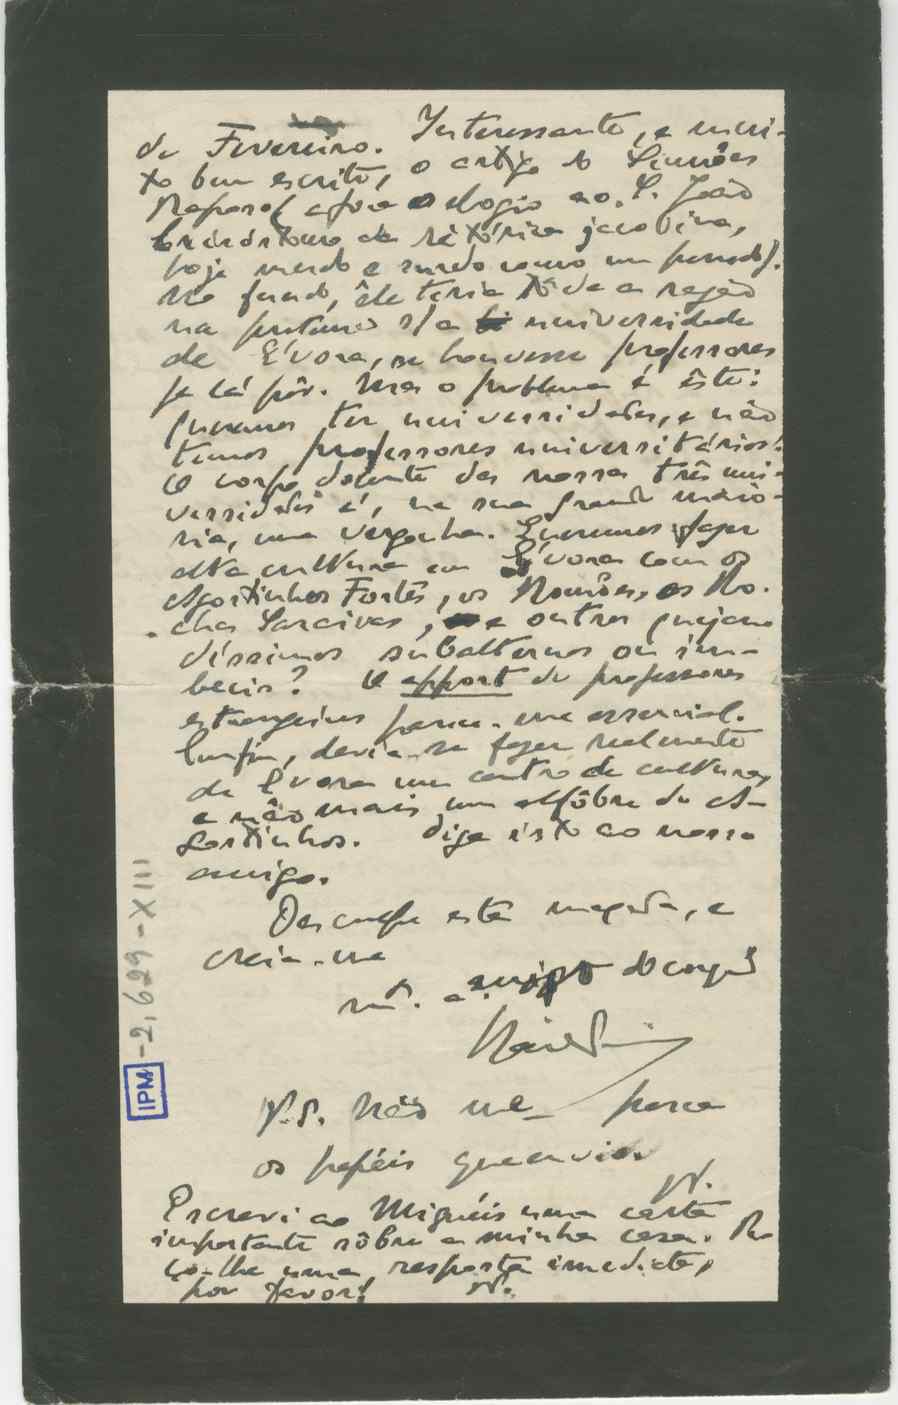 de Fevereiro. Interessante, e mui-
to bem escrito, o artigo do Simões
Raposo (afora o elogio ao S. João
Crisóstomo da retórica jacobina,
hoje mudo e surdo como um penedo).
No fundo, êle teria tôda a razão
na s/ a universidade
de Évora, se houvesse professores
pª lá pôr. Mas o problema é êste:
queremos ter universidades, e não
temos professores universitários!
O corpo docente das nossas três uni-
versidades é, na sua grande maio-
ria, uma vergonha. Queremos fazer
alta cultura em Évora com os
Agostinhos Fortes, os Romões, os Ro-
chas Saraivas, e outros quejan-
díssimos subalternos ou im-
becis? O apport de professores
estrangeiros parece-me essencial.
Enfim, devia-se fazer realmente
de Évora um centro de cultura,
e não mais um alfôbre de A-
gostinhos. Diga isto ao nosso
amigo.
Desculpe esta maçada, e
creia-me
mtº. amigo do coração
P.S. Não me perca
os papéis que envio.
Escrevi ao Miguéis uma carta
importante sôbre a minha casa. Pe
ço-lhe uma resposta imediata,
por favor!
IPM-2,629-XIII